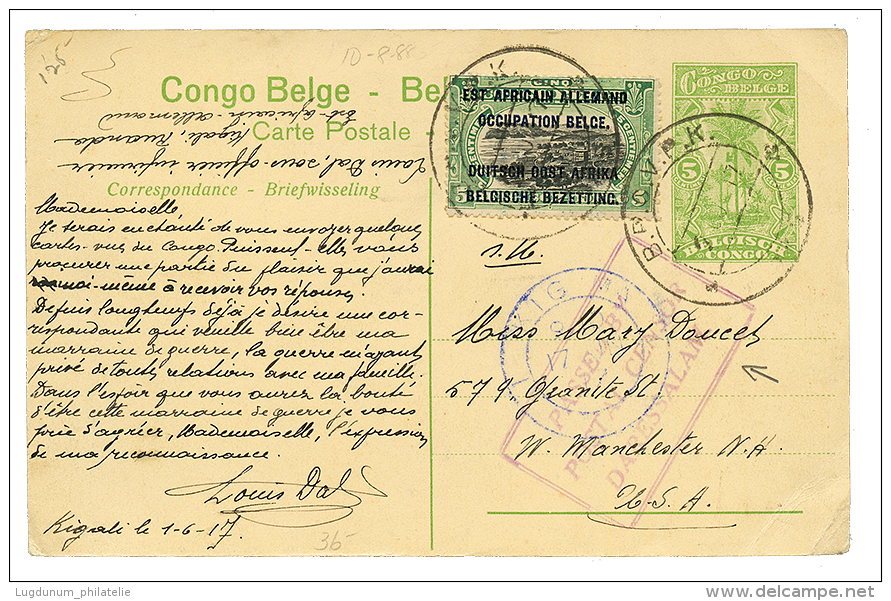 125-
10-8-88
Congo Belge - Bel
Carte Postale -
Louis Dal, sous officier infirmier
Kigali Ruanda
Est-africain-Allemand
Correspondance - Briefwisseling
EST AFRICAIN ALLEMAND
OCCUPATION BELGE.
DUITSCH OOST AFRIKA
BELGISCHE BEZETTING.
5
CONGO
BELGE
5
5
BELGISCH
CONGO
B.P.C.V.P.K.
Mademoiselle
Je serais enchanté de vous envoyer quelques
cartes-vues du Congo. Puissent-elles vous
procurer une partie du plaisir que j'aurai
moi-même à recevoir vos réponses.
Depuis longtemps déjà je désire une cor-
respondante qui veuille bien être ma
marraine de guerre, la guerre m'ayant
privé de toutes relations avec ma famille.
Dans l'espoir que vous aurez la bonté
d'être cette marraine de guerre je vous
prie d'agréer, Mademoiselle, l'expression
de ma reconnaissance.
Louis Dal
Kigali le 1-6-17.
36-
s.m.
KIG
17
PASSED BY
POSTAL CENSOR
DARESSALAM
Miss Mary Doucet
579 Granite St
W. Manchester N.H.
U.S.A.
Lugdunum_philatelie
delcampe.net